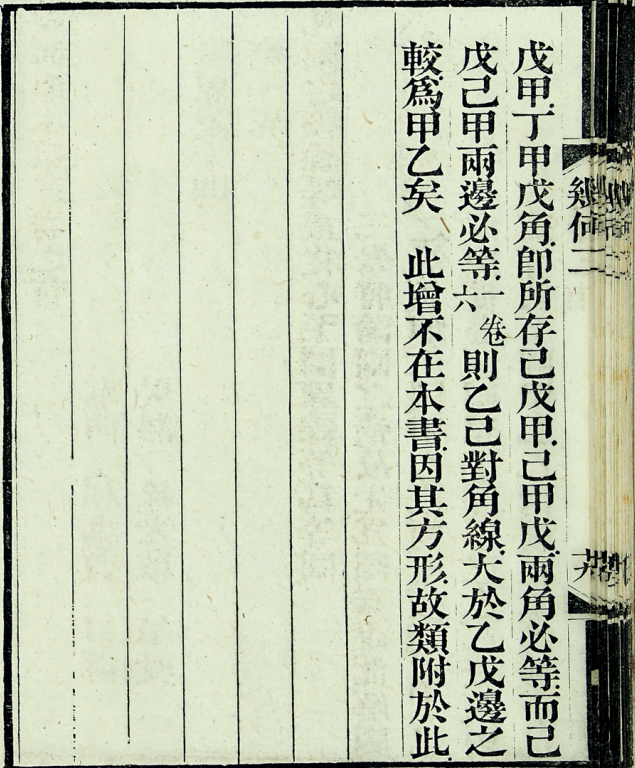 戊甲丁甲戊角卽所存己戊甲己甲戊兩角必等而己
戊己甲兩邊必等一卷六則乙己對角線大於乙戊邊之
較爲甲乙矣　此增不在本書因其方形故類附於此
幾何二